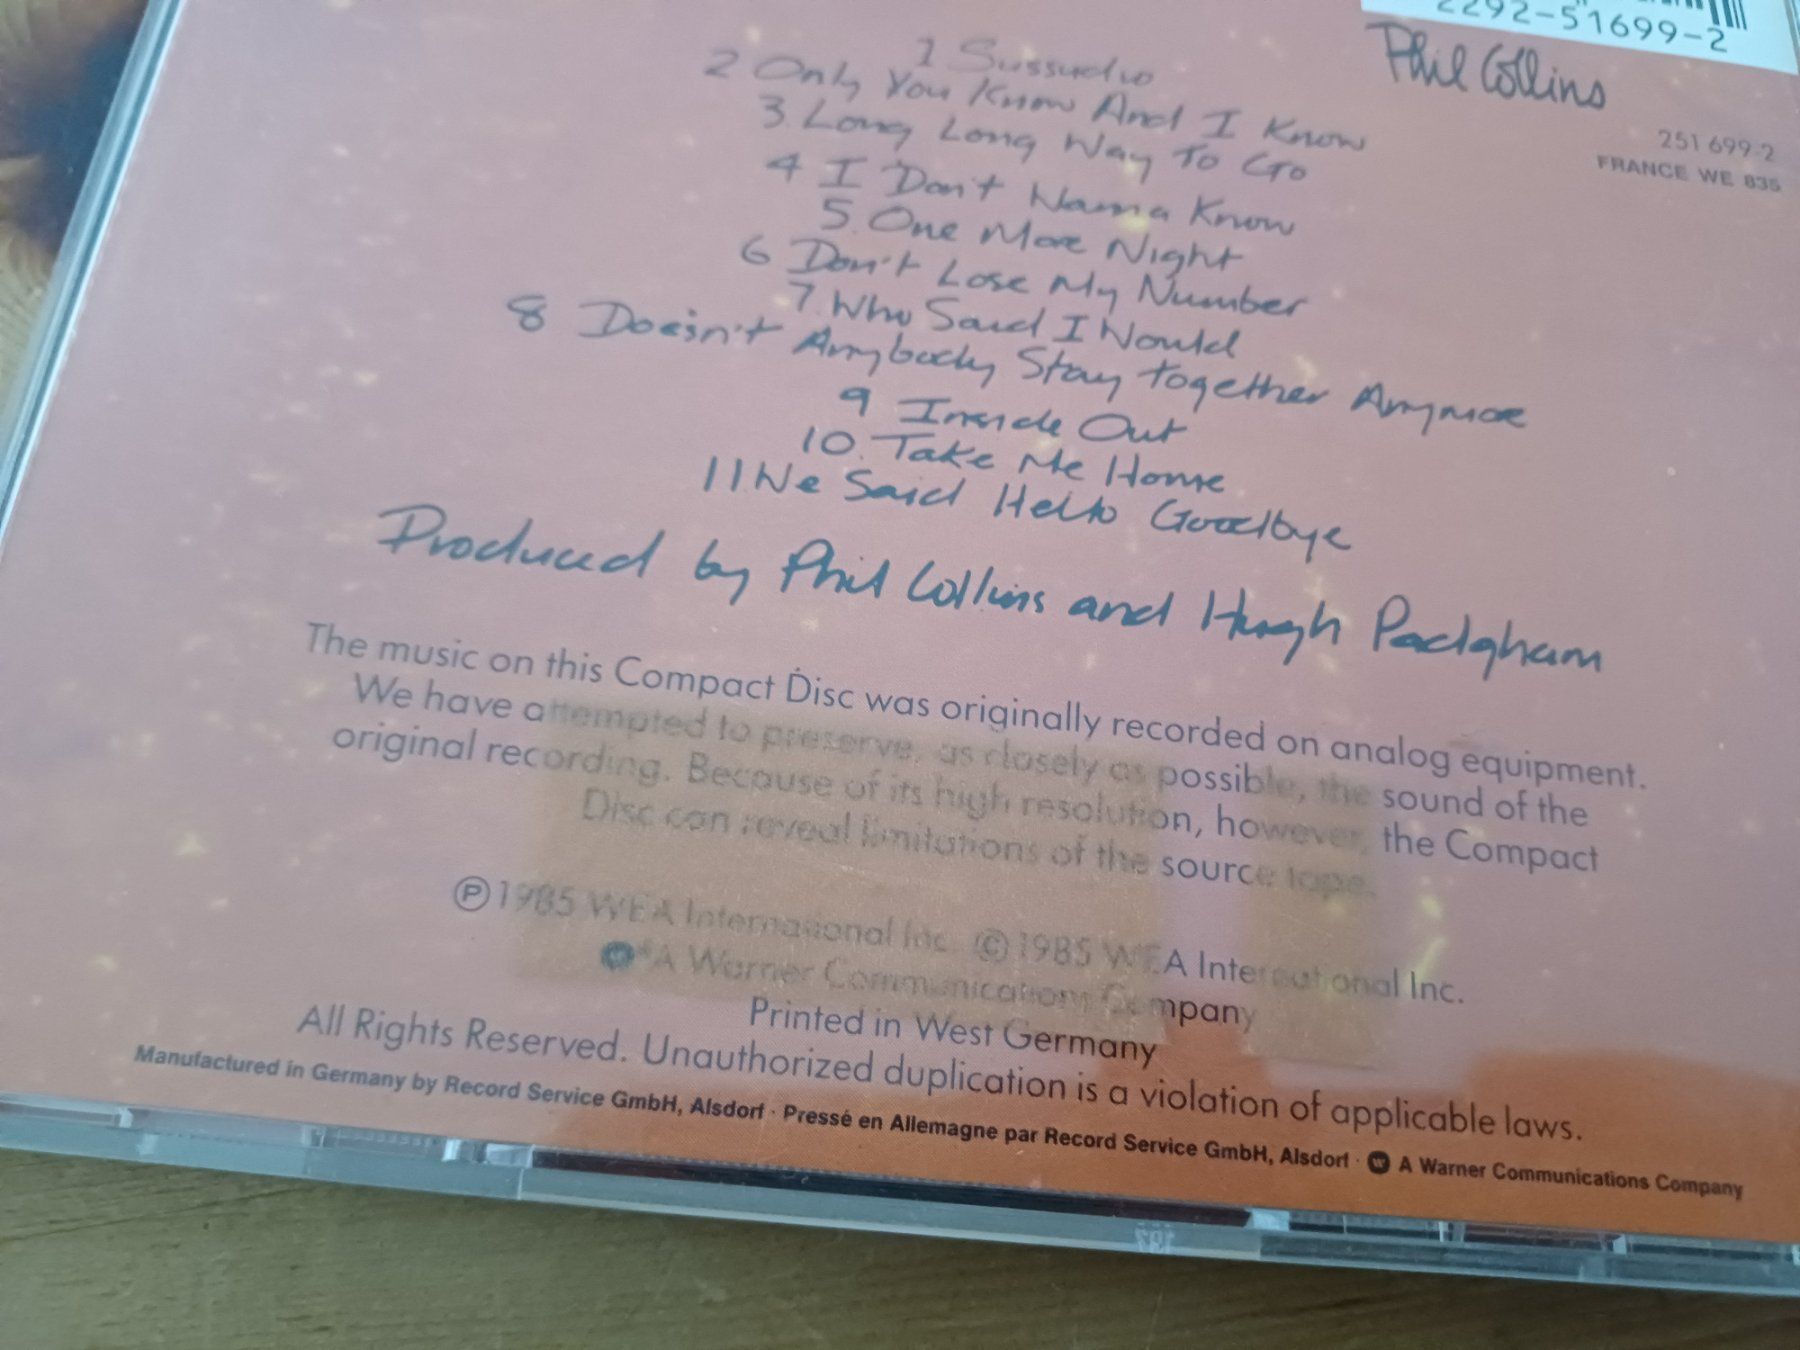 2292-51699-2
Phil Collins
251 699-2
FRANCE WE 835
1 Sussudio
2 Only You Know And I Know
3. Long Long Way To Go
4 I Don't Wanna Know
5. One More Night
6 Don't Lose My Number
7. Who Said I Would
8 Doesn't Anybody Stay Together Anymore
9 Inside Out
10. Take Me Home
11. We Said Hello Goodbye
Produced by Phil Collins and Hugh Padgham
The music on this Compact Disc was originally recorded on analog equipment.
We have attempted to preserve, as closely as possible, the sound of the
original recording. Because of its high resolution, however, the Compact
Disc can reveal limitations of the source tape.
℗ 1985 WEA International Inc. © 1985 WEA International Inc.
A Warner Communications Company
Printed in West Germany
All Rights Reserved. Unauthorized duplication is a violation of applicable laws.
Manufactured in Germany by Record Service GmbH, Alsdorf · Pressé en Allemagne par Record Service GmbH, Alsdorf · A Warner Communications Company